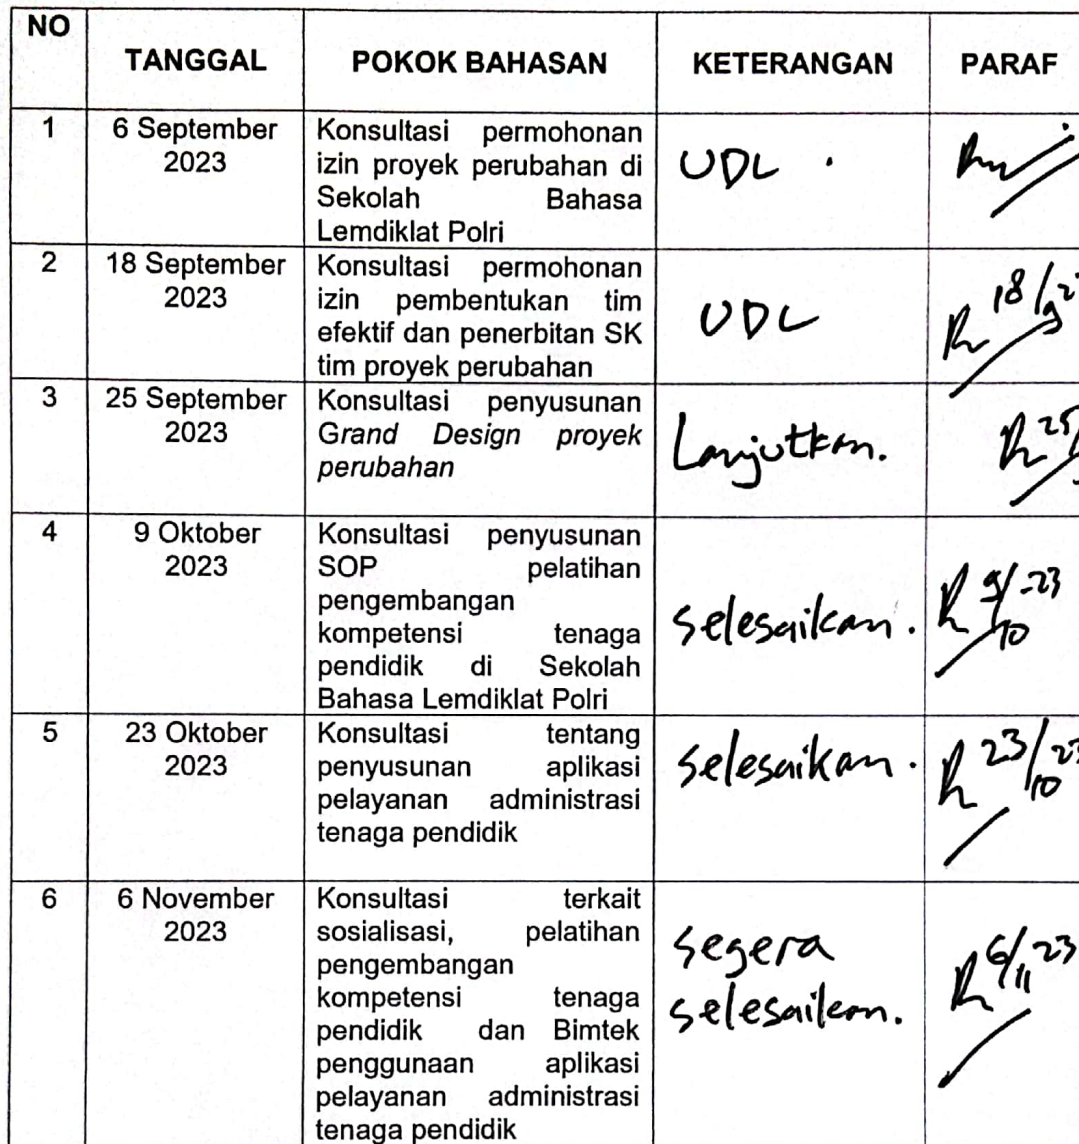 NO
TANGGAL
POKOK BAHASAN
KETERANGAN
PARAF
1
6 September
2023
Konsultasi permohonan
izin proyek perubahan di
Sekolah Bahasa
Lemdiklat Polri
UDL
2
18 September
2023
Konsultasi permohonan
izin pembentukan tim
efektif dan penerbitan SK
tim proyek perubahan
UDL
18/9
3
25 September
2023
Konsultasi penyusunan
Grand Design proyek
perubahan
Lanjutkan.
25/
4
9 Oktober
2023
Konsultasi penyusunan
SOP pelatihan
pengembangan
kompetensi tenaga
pendidik di Sekolah
Bahasa Lemdiklat Polri
selesaikan.
9/10-23
5
23 Oktober
2023
Konsultasi tentang
penyusunan aplikasi
pelayanan administrasi
tenaga pendidik
selesaikan.
23/10 23
6
6 November
2023
Konsultasi terkait
sosialisasi, pelatihan
pengembangan
kompetensi tenaga
pendidik dan Bimtek
penggunaan aplikasi
pelayanan administrasi
tenaga pendidik
segera
selesaikan.
6/11 23